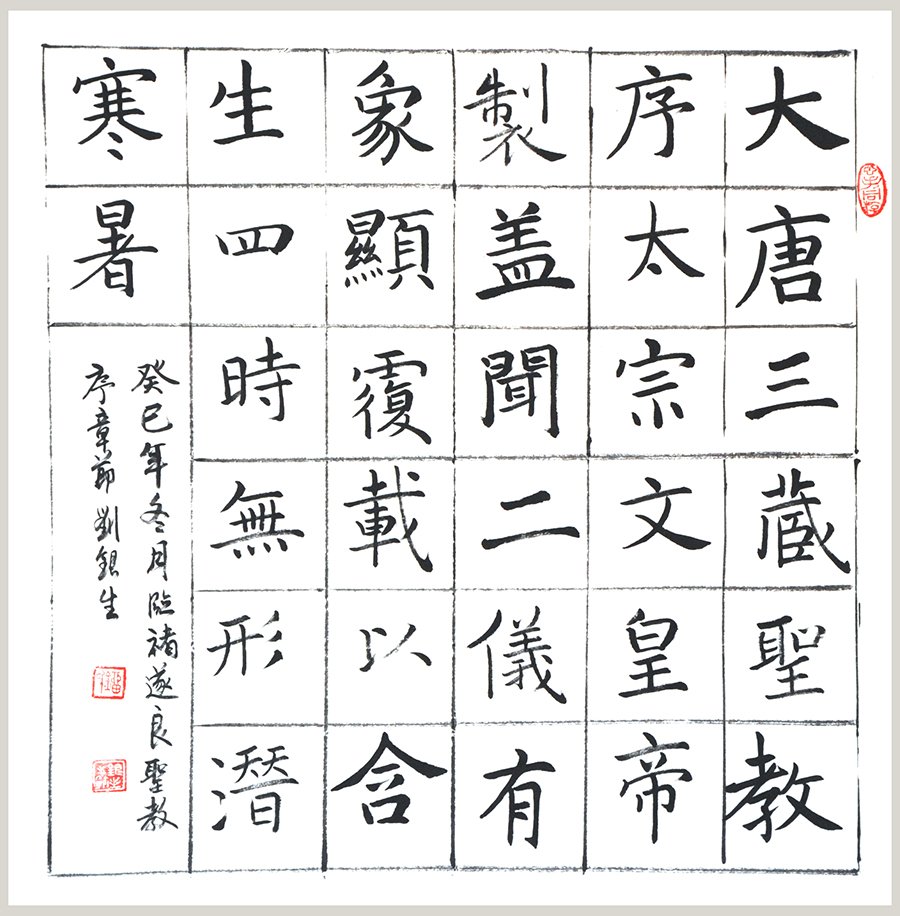 大唐三蔵聖教
序太宗文皇帝
製盖聞二儀有
象顯覆載以含
生四時無形潛
寒暑
癸巳年冬月臨褚遂良聖教
序章節劉銀生